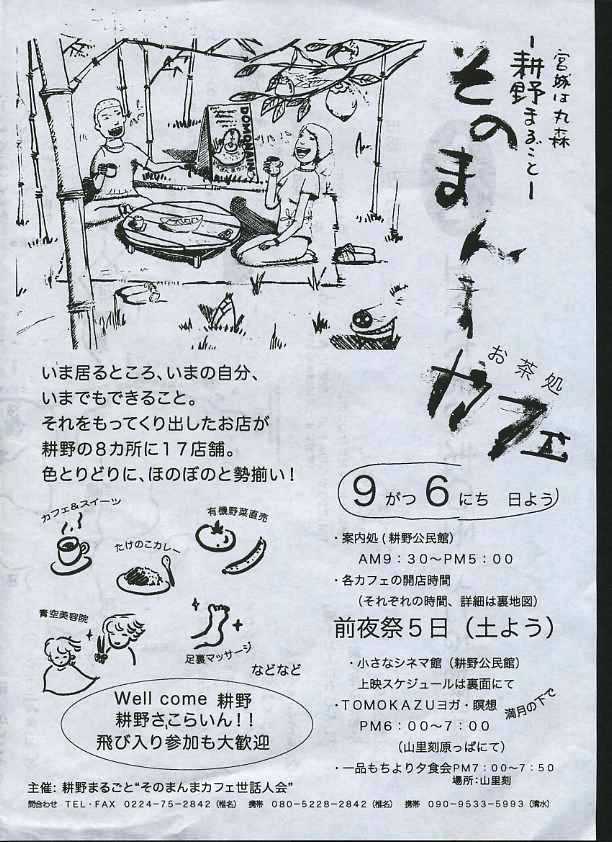 宮城は丸森
-耕野まるごと-
そのまんまカフェ
お茶処
いま居るところ、いまの自分、
いまでもできること。
それをもってくり出したお店が
耕野の8カ所に17店舗。
色とりどりに、ほのぼのと勢揃い！
カフェ＆スイーツ
有機野菜直売
たけのこカレー
青空美容院
足裏マッサージ
などなど
Well come 耕野
耕野さ、こらいん！！
飛び入り参加も大歓迎
9がつ6にち 日よう
・案内処(耕野公民館)
AM9：30〜PM5：00
・各カフェの開店時間
（それぞれの時間、詳細は裏地図）
前夜祭5日（土よう）
・小さなシネマ館（耕野公民館）
上映スケジュールは裏面にて
・TOMOKAZUヨガ・瞑想 満月の下で
PM6：00〜7：00
（山里刻原っぱにて）
・一品もちより夕食会PM7：00〜7：50
場所：山里刻
主催：耕野まるごと“そのまんまカフェ世話人会”
問合わせ TEL・FAX 0224-75-2842（椎名） 携帯 080-5228-2842（椎名） 携帯 090-9533-5993（清水）